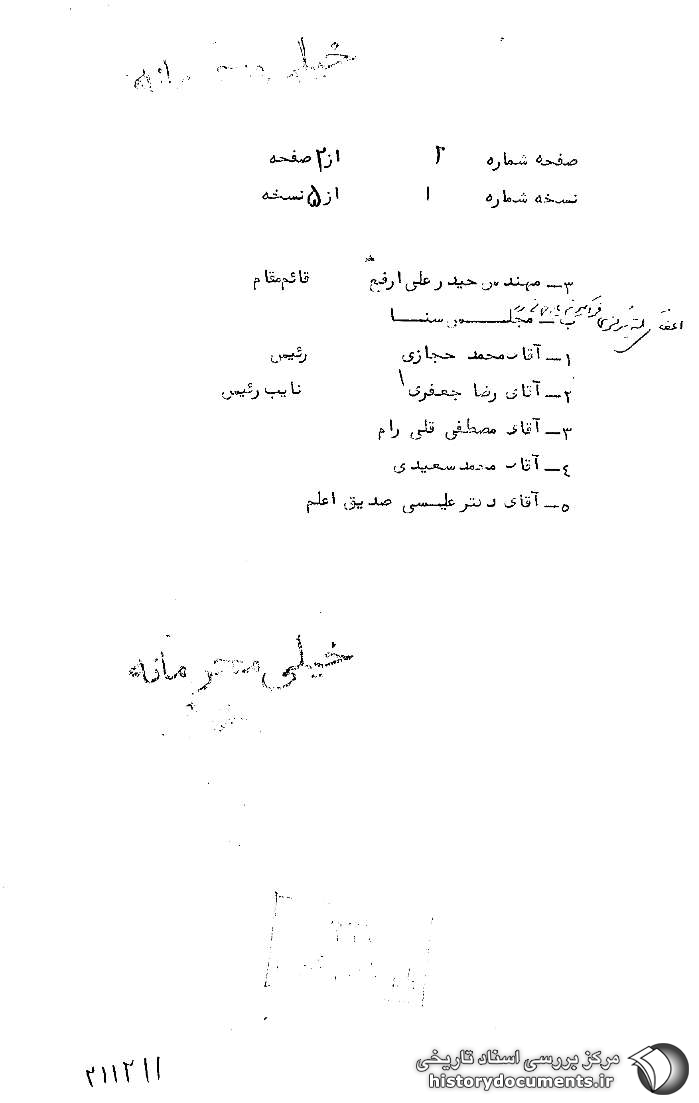 خیلی محرمانه
صفحه شماره ۲ از ۲ صفحه
نسخه شماره ۱ از ۵ نسخه
۳ــ مهندس حیدر علی ارفع قائم‌مقام
ب ــ مجلس سنا
۱ــ آقای محمد حجازی رئیس
۲ــ آقای رضا جعفری نایب رئیس
۳ــ آقای مصطفی قلی رام
۴ــ آقای محمد سعیدی
۵ــ آقای دکتر عیسی صدیق اعلم
خیلی محرمانه
۲۱۱۲۱۱
مرکز بررسی اسناد تاریخی
historydocuments.ir